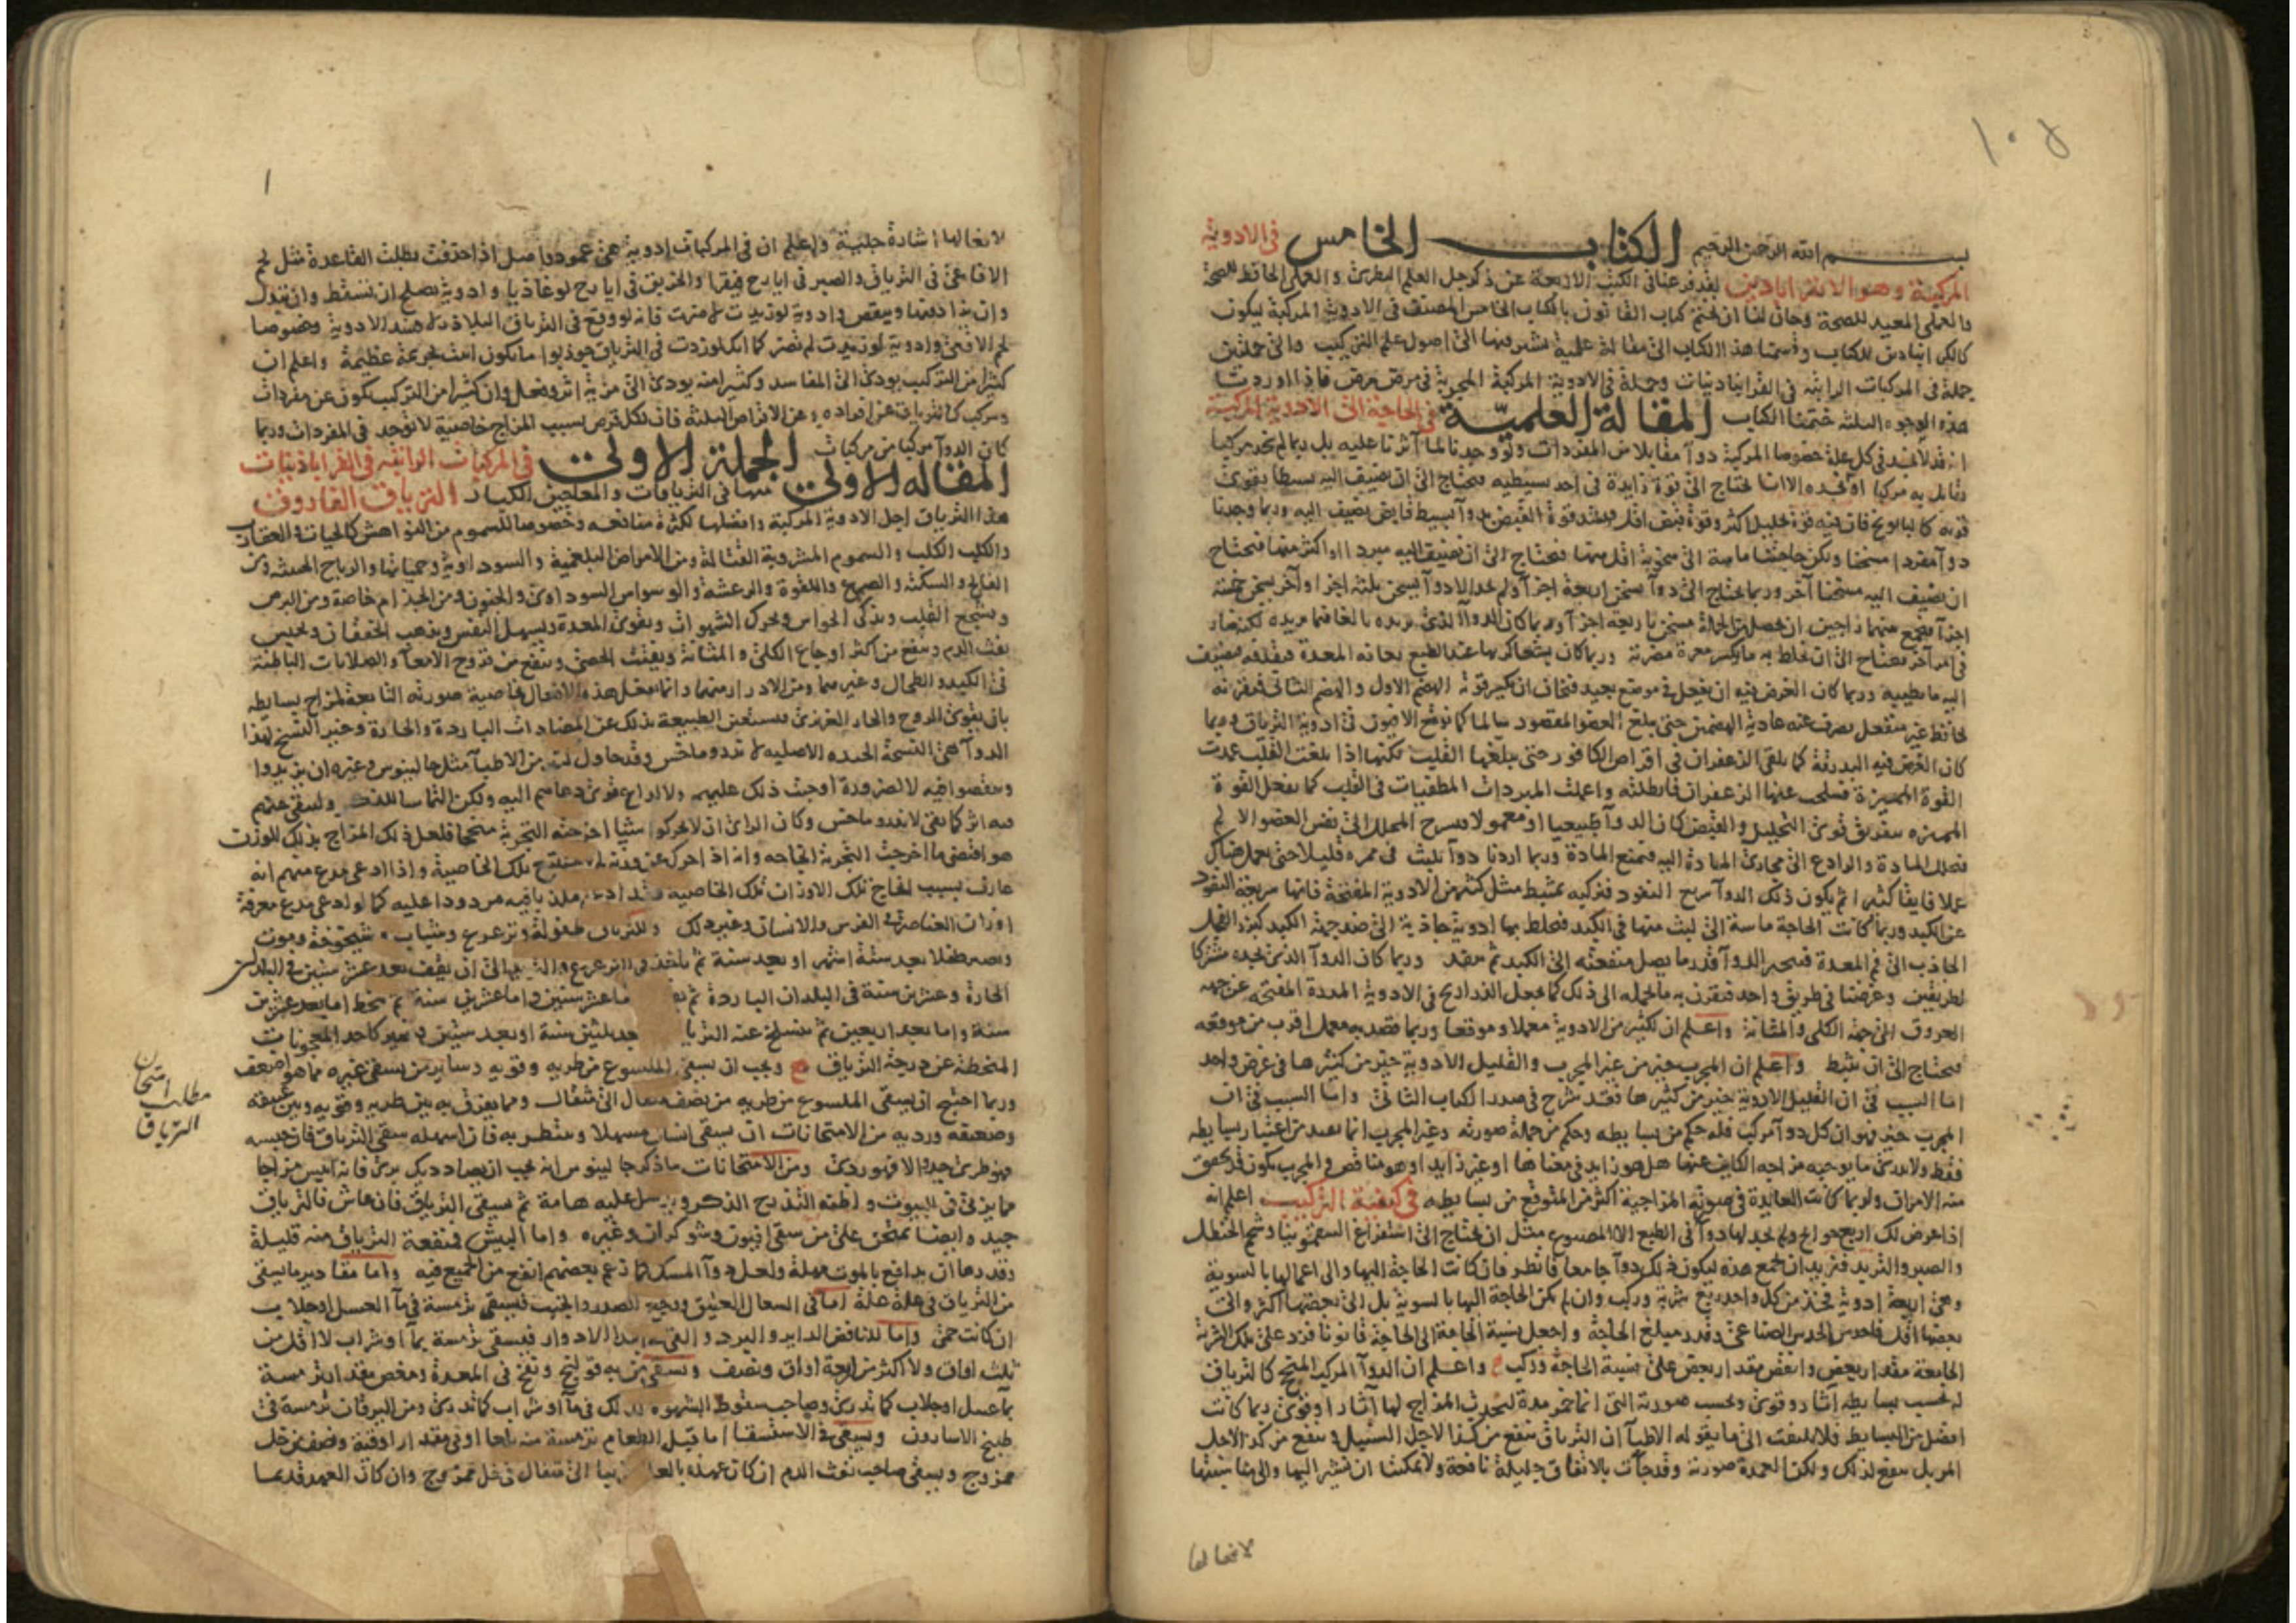 ١٠٥
بسم الله الرحمن الرحيم الكتاب الخامس في الادوية
المركبة وهو الاقراباذين لقد فرغنا في الكتب الاربعة عن ذكر جل العلم النظري والعملي الحافظ للصحة
والعملي المعيد للصحة وحان لنا ان نختم كتاب القانون بالكتاب الخامس المصنف في الادوية المركبة ليكون
كالقراباذين للكتاب وقسمنا هذا الكتاب الى مقالة علمية نشير فيها الى اصول علم التركيب والى جملتين
جملة في المركبات الراتبة في القراباذينات وجملة في الادوية المركبة المجربة في مرض مرض فاذا اوردنا
هذه الوجوه الثلثة ختمنا الكتاب المقالة العلمية في الحاجة الى الادوية المركبة
انه قد لا نجد في كل علة خصوصا المركبة دوآ مقابلا من المفردات ولو وجدنا لما آثرنا عليه بل ربما لم نجد مركبا
نقابل به مركبا او نجده الا انا نحتاج الى قوة زايدة في احد بسيطيه فنحتاج الى ان نضيف اليه بسيطا يقوي
قوته كالبابونج فان فيه قوة تحليل اكثر وقوة قبض اقل فنشد قوة القبض بدوآ بسيط قابض نضيف اليه وربما وجدنا
دوآ مفردا مسخنا ويكون حاجتنا ماسة الى سخونة اقل منها فنحتاج الى ان نضيف اليه مبردا او اكثر منها فنحتاج
ان نضيف اليه مسخنا آخر وربما نحتاج الى دوآ يسخن اربعة اجزآ ولم نجد الا دوآ يسخن ثلثة اجزا وآخر يسخن خمسة
اجزآ فنجمع بينهما راجين ان يحصل من الجملة مسخن باربعة اجزآ وربما كان الدوآ الذي نريده بالغا فيما نريده لكنه ضار
في امر آخر فنحتاج الى ان نخلط به ما يكسر مضرته وربما كان بشعا كريها عند الطبع تعافه المعدة فتقذفه فنضيف
اليه ما يطيبه وربما كان الغرض فيه ان يفعل في موضع بعيد فنخاف ان يكسر قوته الهضم الاول والهضم الثاني فنقرن به
حافظا غير منفعل يصرف عنه عادية الهضمين حتى يبلغ العضو المقصود سالما كما نوقع الافيون في ادوية الترياق وربما
كان الغرض فيه البدرقة كما يلقى الزعفران في اقراص الكافور حتى يبلغها القلب لكنها اذا بلغت القلب
القوة المميزة عنها الزعفران فابطلته واعملت المبردات المطفيات في القلب كما يفعل القوة
المميزة بتفريق قوتي التحليل والقبض كان الدوآ طبيعيا او معمولا فيسرح المحلل الى نفس العضو الالم
فتحلل المادة والرادع الى مجاري المادة اليه فتمنع المادة وربما اردنا دوآ يلبث في ممره قليلا حتى يعمل هناك
عملا فايقا كثيرا ثم يكون ذلك الدوآ سريع النفوذ فنركبه بمثبط مثل كثير من الادوية المفتحة فانها سريعة النفوذ
عن الكبد وربما كانت الحاجة ماسة الى لبث منها في الكبد فنخلط بها ادوية جاذبة الى ضد جهة الكبد كبزر الفجل
الجاذب الى فم المعدة فتحير الدوآ قدر ما يصل منفعته الى الكبد ثم ينفذ وربما كان الدوآ الذي نجده مشتركا
لطريقين وغرضنا في طريق واحد فنقرن به ما يحمله الى ذلك كما نجعل الذراريح في الادوية المدرة المفتحة عن جهة
العروق الى جهة الكلى والمثانة واعلم ان لكثير من الادوية معملا وموقعا وربما قصد به معمل اقرب من موقعه
فنحتاج الى ان نثبط واعلم ان المجرب خير من غير المجرب والقليل الادوية خير من كثيرها في غرض واحد
اما السبب في ان القليل الادوية خير من كثيرها فقد شرح في صدر الكتاب الثاني واما السبب في ان
المجرب خير فهو ان كل دوآ مركب فله حكم من بسايطه وحكم من جملة صورته وغير المجرب انما نعتد من اعتبار بسايطه
فقط ولا ندري ما يوجبه مزاجه الكاين عنها هل هو زايد في معناها او غير زايد او هو مناقض والمجرب يكون قد تحقق
منه الامران ولربما كانت الفايدة في صورته المزاجية اكثر من المتوقع من بسايطه في كيفية التركيب اعلم انه
اذا عرض لك اربع حوايج ولم تجد لها دوآ في الطبع الا المصنوع مثل ان نحتاج الى استفراغ السقمونيا وشحم الحنظل
والصبر والتربد فنريد ان نجمع هذه ليكون ذلك دوآ جامعا فانظر فان كانت الحاجة اليها والى اعمالها بالسوية
وهي اربعة ادوية فخذ من كل واحد ربع شربة وركب وان لم يكن الحاجة اليها بالسوية بل الى بعضها اكثر والى
بعضها اقل فاحدس الحدس الصناعي وقدر مبلغ الحاجة واجعل نسبة الحاجة الى الحاجة قانونا فزد على تلك الشربة
الجامعة مقدار بعض وانقص مقدار بعض على نسبة الحاجة وركب واعلم ان الدوآ المركب المنجح كالترياق
له بحسب بسايطه آثار وقوى وبحسب صورته التي انما تخمر مدة لتحدث المزاج لها آثارا وقوى ربما كانت
افضل من البسايط فلا تلتفت الى ما يقوله الاطبآ ان الترياق ينفع من كذا لاجل السنبل وينفع من كذا لاجل
المر بل ينفع لذلك ولكن العمدة صورته وقد جآت بالاتفاق جليلة نافعة ولا يمكننا ان نشير اليها والى مناسبتها
لافعالها
١
لافعالها اشارة جلية واعلم ان في المركبات ادوية هي عمود واصل اذا حذفت بطلت القاعدة مثل لحم
الافاعي في الترياق والصبر في ايارج فيقرا والخربق في ايارج لوغاذيا وادوية يصلح ان تسقط وان تبدل
وان يزاد فيها وينقص وادوية لو زيدت ضرت فانه لو وقع في الترياق البلاذر افسد الادوية وخصوصا
لحم الافعى وادوية لو زيدت لم تضر كما انك لو زدت في الترياق جوذبوا ما يكون اتيت بجريمة عظيمة واعلم ان
كثيرا من التركيب يودي الى المفاسد وكثيرا منه يودي الى مزية اثر وفعل وان كثيرا من التركيب يكون عن مفردات
ومركب كالترياق عن افراده وعن الاقراص الثلثة فان لكل قرص بسبب المزاج خاصية لا توجد في المفردات وربما
كان الدوآ مركبا من مركبات الجملة الاولى في المركبات الراتبة في القراباذينات
المقالة الاولى منها في الترياقات والمعاجين الكبار الترياق الفاروق
هذا الترياق اجل الادوية المركبة وافضلها لكثرة منافعه وخصوصا للسموم من النواهش كالحيات والعقارب
والكلب الكلب والسموم المشروبة القتالة ومن الامراض البلغمية والسوداوية وحمياتها والرياح الخبيثة ومن
الفالج والسكتة والصرع واللقوة والرعشة والوسواس السوداوي والجنون ومن الجذام خاصة ومن البرص
ويشجع القلب ويذكي الحواس ويحرك الشهوات ويقوي المعدة ويسهل النفس ويذهب الخفقان ويحبس
نفث الدم وينفع من اكثر اوجاع الكلى والمثانة ويفتت الحصى وينفع من قروح الامعآ والصلابات الباطنة
في الكبد والطحال وغيرهما ومن وانما يفعل هذه الافعال بخاصية صورته التابعة لمزاج بسايطه
بان يقوي الروح والحار الغريزي فتستعين الطبيعة بذلك عن المضادات الباردة والحارة وخير النسخ لهذا
الدوآ هي النسخة الاصلية وقد حاول من الاطبآ مثل جالينوس وغيره ان يزيدوا
وينقصوا فيه لا لضرورة اوجبت ذلك عليهم ولا لداع قوي دعاهم اليه ولكن التماسا وليبقى عنهم
فيه اثر كما بقي لاندروماخس وكان الراي ان لا يحركوا شيئا اخرجته التجربة منجحا فلعل ذلك المزاج بذلك الوزن
هو اقتضى ما اخرجت التجربة وانه اذا حرك عن وزنه لم تلك الخاصية واذا ادعى مدع منهم انه
عارف بسبب انجاح تلك الاوزان تلك الخاصية مردودا عليه كما لو ادعى مدع معرفة
اوزان العناصر في الفرس والانسان وغير ذلك وللترياق طفولة وترعرع وشباب وشيخوخة وموت
ويصير طفلا بعد ستة اشهر او بعد سنة ثم ياخذ في الترعرع الى ان يقف بعد عشر سنين في البلدان
الحارة وعشرين سنة في البلدان الباردة ثم اما عشر سنين واما عشرين سنة ثم ينحط اما بعد عشرين
سنة واما بعد اربعين ثم تنسلخ عنه بعد ثلثين سنة او بعد ستين فيصير كاحد المعجونات
المنحطة عن درجة الترياق ويجب ان يسقى الملسوع من طريه وقويه وساير من يسقى غيره مما هو اضعف
وربما احتيج ان يسقى الملسوع من طريه من نصف مثقال الى مثقال ومما يفرق به بين طريه وقويه وبين عتيقه
وضعيفه ورديه من الامتحانات ان يسقى انسان مسهلا وينتظر به فان اسهله سقى الترياق فان حبسه
فهو طري جيد والا فهو ردي ومن الامتحانات ما ذكره جالينوس انه يجب ان يصاد ديك بري فانه ايبس مزاجا
مما يربى في البيوت الذكر ويرسل عليه هامة ثم يسقى الترياق فان عاش فالترياق
جيد وايضا يمتحن على من سقي افيون وشوكران وغيره واما البيش فمنفعة الترياق منه قليلة
وقدرها ان يدافع بالموت مهلة ولعل دوآ المسك كما زعم بعضهم انفع من الجميع فيه واما مقادير ما يسقى
من الترياق في علة علة اما في السعال العتيق ووجع الصدر والجنب فيسقى ترمسة في مآ العسل او جلاب
ان كانت حمى واما للنافض الداير والبرد والقي الادوار فيسقى ترمسة بمآ او شراب لا اقل من
ثلث اواق ولا اكثر من اربعة اواق ونصف ويسقى من به قولنج ونفخ في المعدة ومغص مقدار ترمسة
بمآ عسل او جلاب كما تدري وصاحب سقوط الشهوة كذلك في مآ او شراب كما تدري ومن اليرقان ترمسة في
طبيخ الاسارون ويسقى في الاستسقا اما قبل الطعام ترمسة منه او في مقدار اوقية ونصف من خل
ممزوج ويسقى صاحب نفث الدم ان كان عهده الى مثقال في خل ممزوج وان كان العهد قديما
مطلب امتحان
الترياق